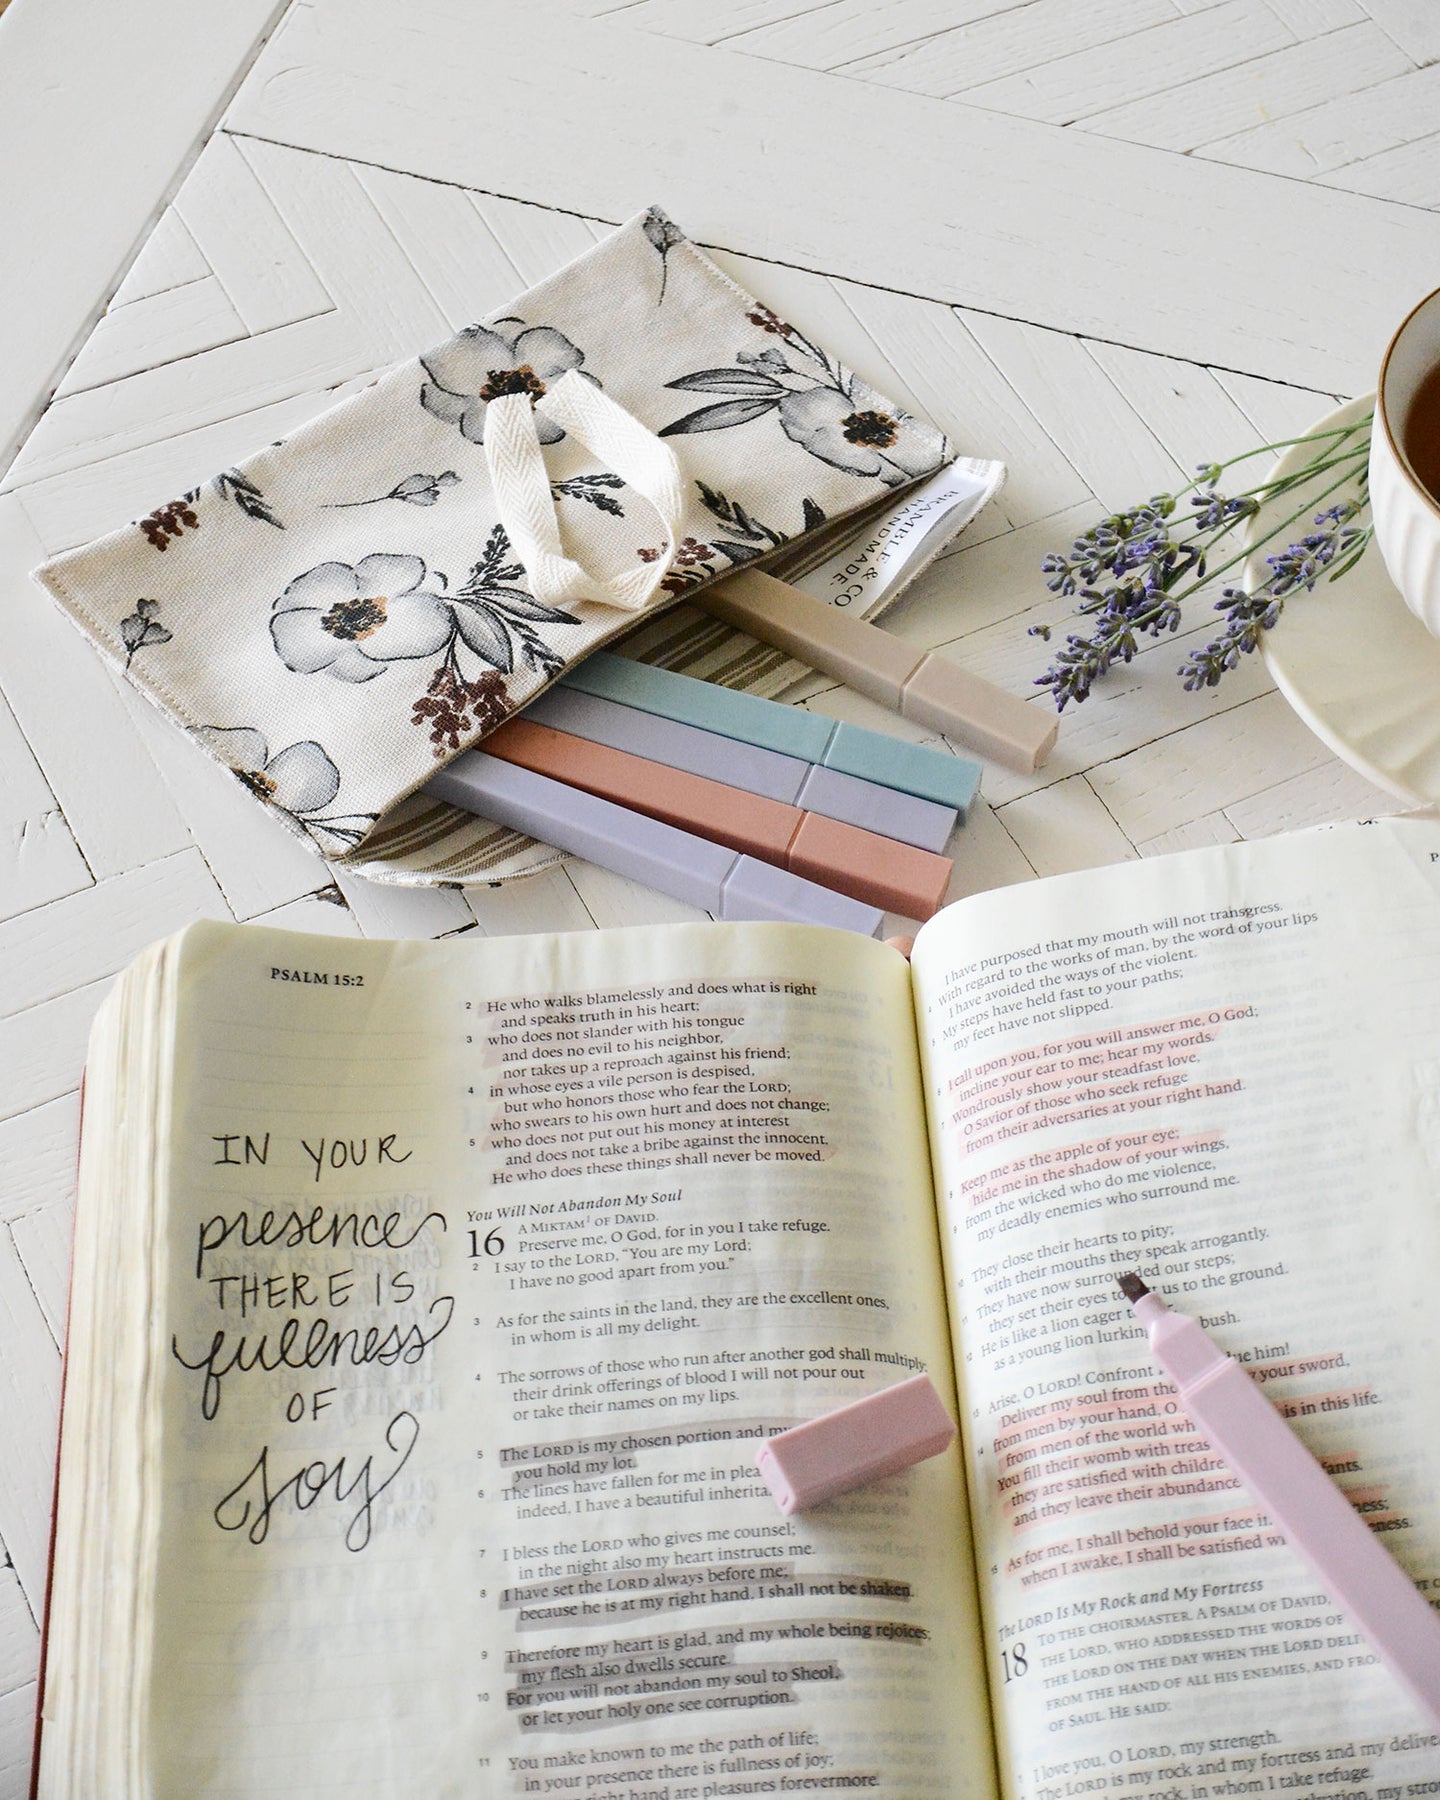 BRAMBLE & CO.
HANDMADE
PSALM 15:2
IN YOUR
presence
THERE IS
fullness
OF
Joy
2 He who walks blamelessly and does what is right
and speaks truth in his heart;
3 who does not slander with his tongue
and does no evil to his neighbor,
nor takes up a reproach against his friend;
4 in whose eyes a vile person is despised,
but who honors those who fear the LORD;
who swears to his own hurt and does not change;
5 who does not put out his money at interest
and does not take a bribe against the innocent.
He who does these things shall never be moved.
You Will Not Abandon My Soul
16 A MIKTAM¹ OF DAVID.
Preserve me, O God, for in you I take refuge.
2 I say to the LORD, “You are my Lord;
I have no good apart from you.”
3 As for the saints in the land, they are the excellent ones,
in whom is all my delight.
4 The sorrows of those who run after another god shall multiply;
their drink offerings of blood I will not pour out
or take their names on my lips.
5 The LORD is my chosen portion and my
you hold my lot.
6 The lines have fallen for me in
indeed, I have a beautiful
7 I bless the LORD who gives me counsel;
in the night also my heart instructs me.
8 I have set the LORD always before me;
because he is at my right hand, I shall not be shaken.
9 Therefore my heart is glad, and my whole being rejoices;
my flesh also dwells secure.
10 For you will not abandon my soul to Sheol,
or let your holy one see corruption.
11 You make known to me the path of life;
in your presence there is fullness of joy;
right hand are pleasures forevermore.
I have purposed that my mouth will not transgress.
4 With regard to the works of man, by the word of your lips
I have avoided the ways of the violent.
5 My steps have held fast to your paths;
my feet have not slipped.
6 I call upon you, for you will answer me, O God;
incline your ear to me; hear my words.
7 Wondrously show your steadfast love,
O Savior of those who seek refuge
from their adversaries at your right hand.
8 Keep me as the apple of your eye;
hide me in the shadow of your wings,
9 from the wicked who do me violence,
my deadly enemies who surround me.
10 They close their hearts to pity;
with their mouths they speak arrogantly.
11 They have now surrounded our steps;
they set their eyes to us to the ground.
12 He is like a lion eager
as a young lion lurking bush.
13 Arise, O LORD! Confront him!
Deliver my soul from the your sword,
14 from men by your hand, O
from men of the world is in this life.
You fill their womb with
they are satisfied with
and they leave their abundance
15 As for me, I shall behold your face
when I awake, I shall be satisfied
The LORD Is My Rock and My Fortress
18 TO THE CHOIRMASTER. A PSALM OF DAVID,
THE LORD, WHO ADDRESSED THE WORDS OF
THE LORD ON THE DAY WHEN THE LORD
FROM THE HAND OF ALL HIS ENEMIES, AND
OF SAUL. HE SAID:
1 I love you, O LORD, my strength.
The LORD is my rock and my fortress and my
my rock, in whom I take refuge,